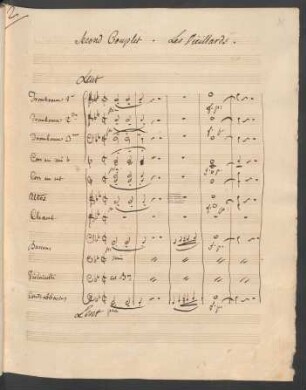 Second Couplet - Les Vieillards.
Lent
Trombone 1er
Trombone 2me
Trombone 3me
Cor en mi b
Cor en ut
Altos
Chant
Bassons
Violoncelli
Contrebasses
Lent